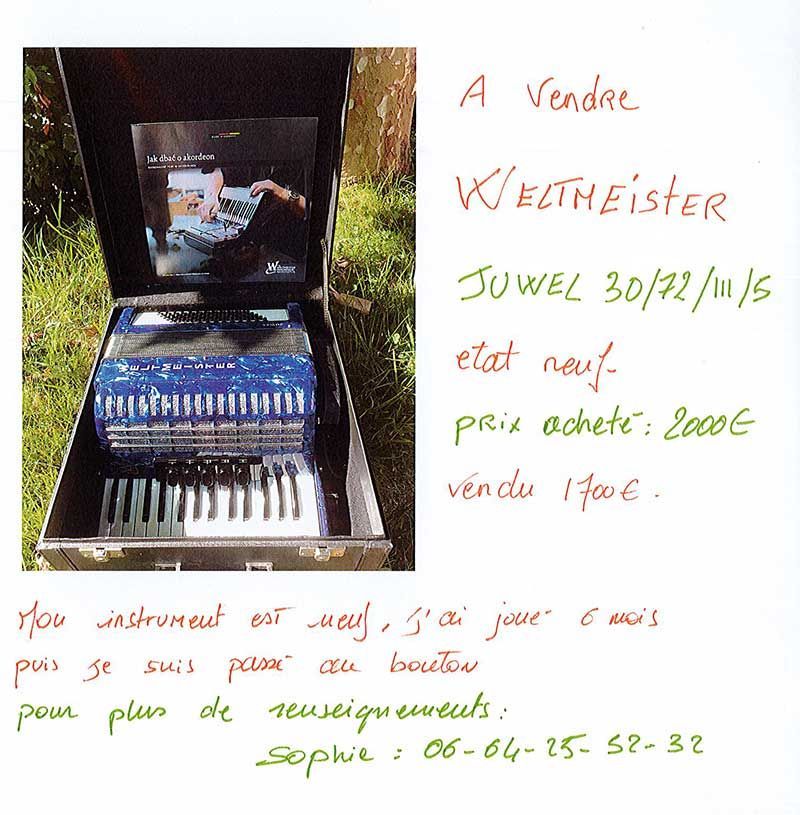 A Vendre
WELTMEISTER
JUWEL 30/72/III/5
etat neuf
prix acheté: 2000€
vendu 1700€.
Jak dbać o akordeon
WELTMEISTER
Mon instrument est neuf, j'ai joué 6 mois
puis je suis passé au bouton
pour plus de renseignements:
Sophie : 06-64-25-52-32